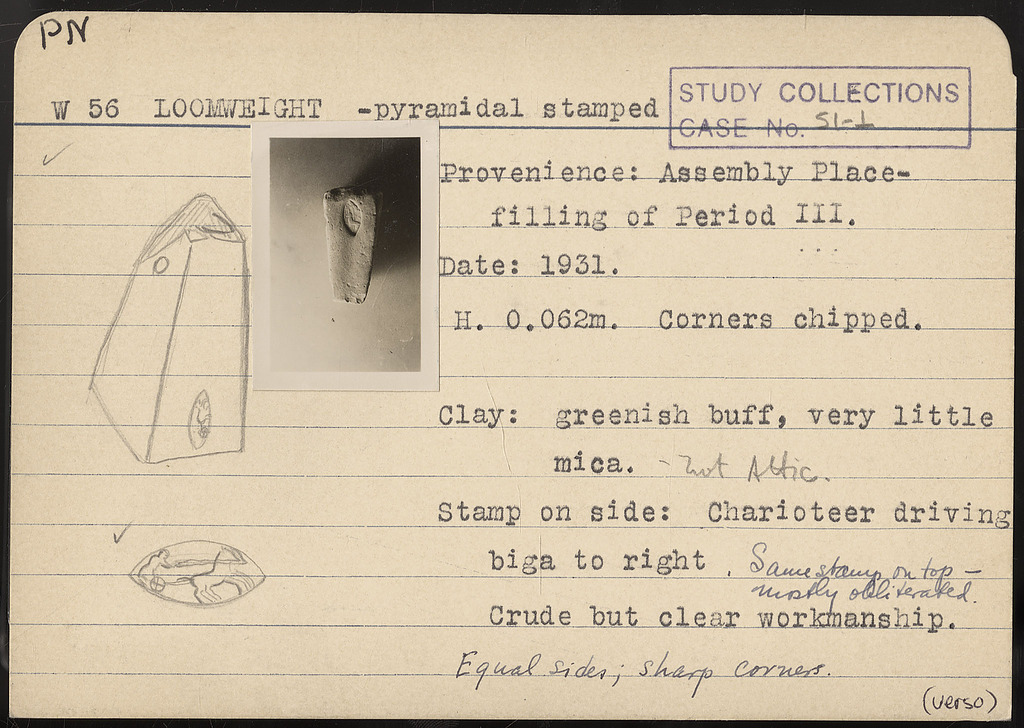 PN
W 56 LOOMWEIGHT -pyramidal stamped
STUDY COLLECTIONS
CASE No. 51-1
Provenience: Assembly Place-
filling of Period III.
Date: 1931.
H. 0.062m. Corners chipped.
Clay: greenish buff, very little
mica. - not Attic.
Stamp on side: Charioteer driving
biga to right. Same stamp on top -
mostly obliterated.
Crude but clear workmanship.
Equal sides; sharp corners.
(verso)